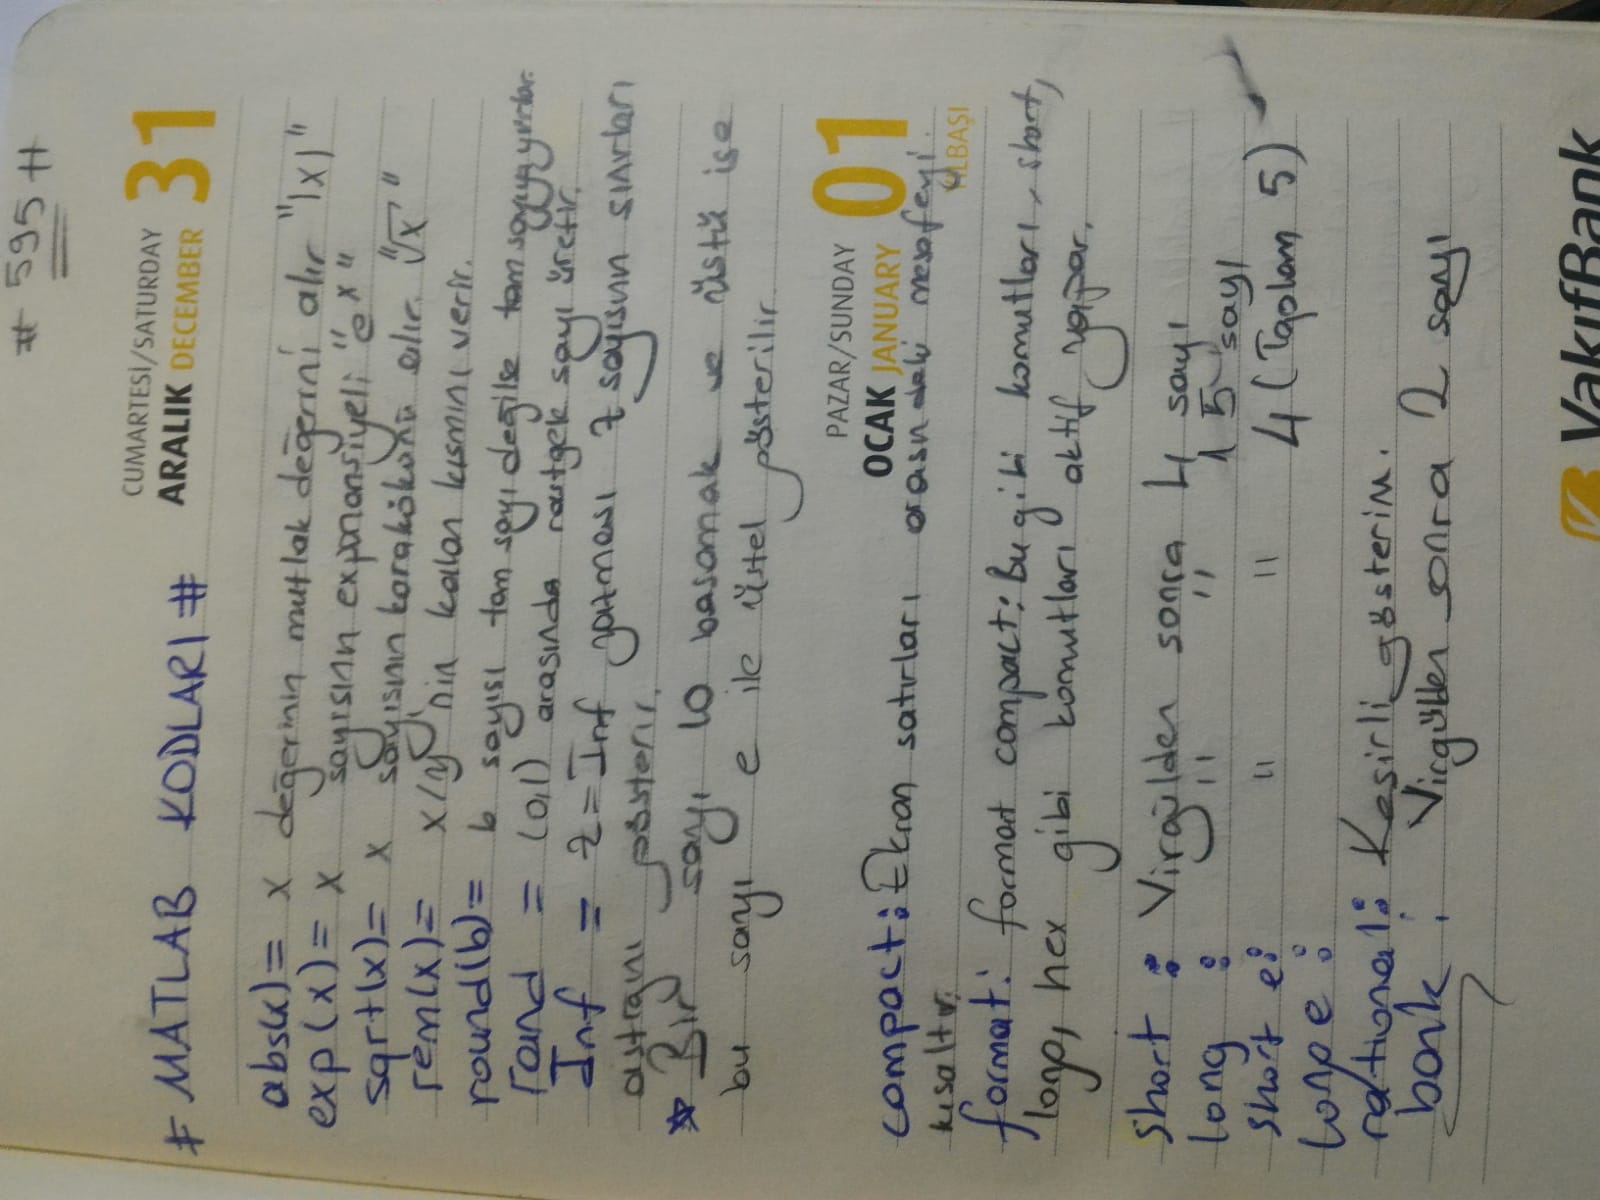 # 595 #
CUMARTESİ/SATURDAY
ARALIK DECEMBER 31
# MATLAB KODLARI #
abs(x) = x değerinin mutlak değerini alır "|x|"
exp(x) = x sayısının exponansiyeli "eˣ"
sqrt(x) = x sayısının karakökünü alır. "√x"
rem(x) = x/y nin kalan kısmını verir.
round(b) = b sayısı tam sayı değilse tam sayıya yuvarlar.
rand = (0,1) arasında rastgele sayı üretir.
Inf = z = Inf yazması z sayısın sınırları
aştığını gösterir.
* Bir sayı 10 basamak ve üstü ise
bu sayı e ile üstel gösterilir
PAZAR/SUNDAY
OCAK JANUARY 01
YILBAŞI
compact: Ekran satırları arasındaki mesafeyi
kısaltır.
format: format compact: Bu gibi komutları, short,
long, hex gibi komutları aktif yapar.
short : Virgülden sonra 4 sayı
long : " " 15 sayı
short e: " " 4 (Toplam 5)
long e :
rational: Kesirli gösterim.
bank : Virgülden sonra 2 sayı
VakıfBank